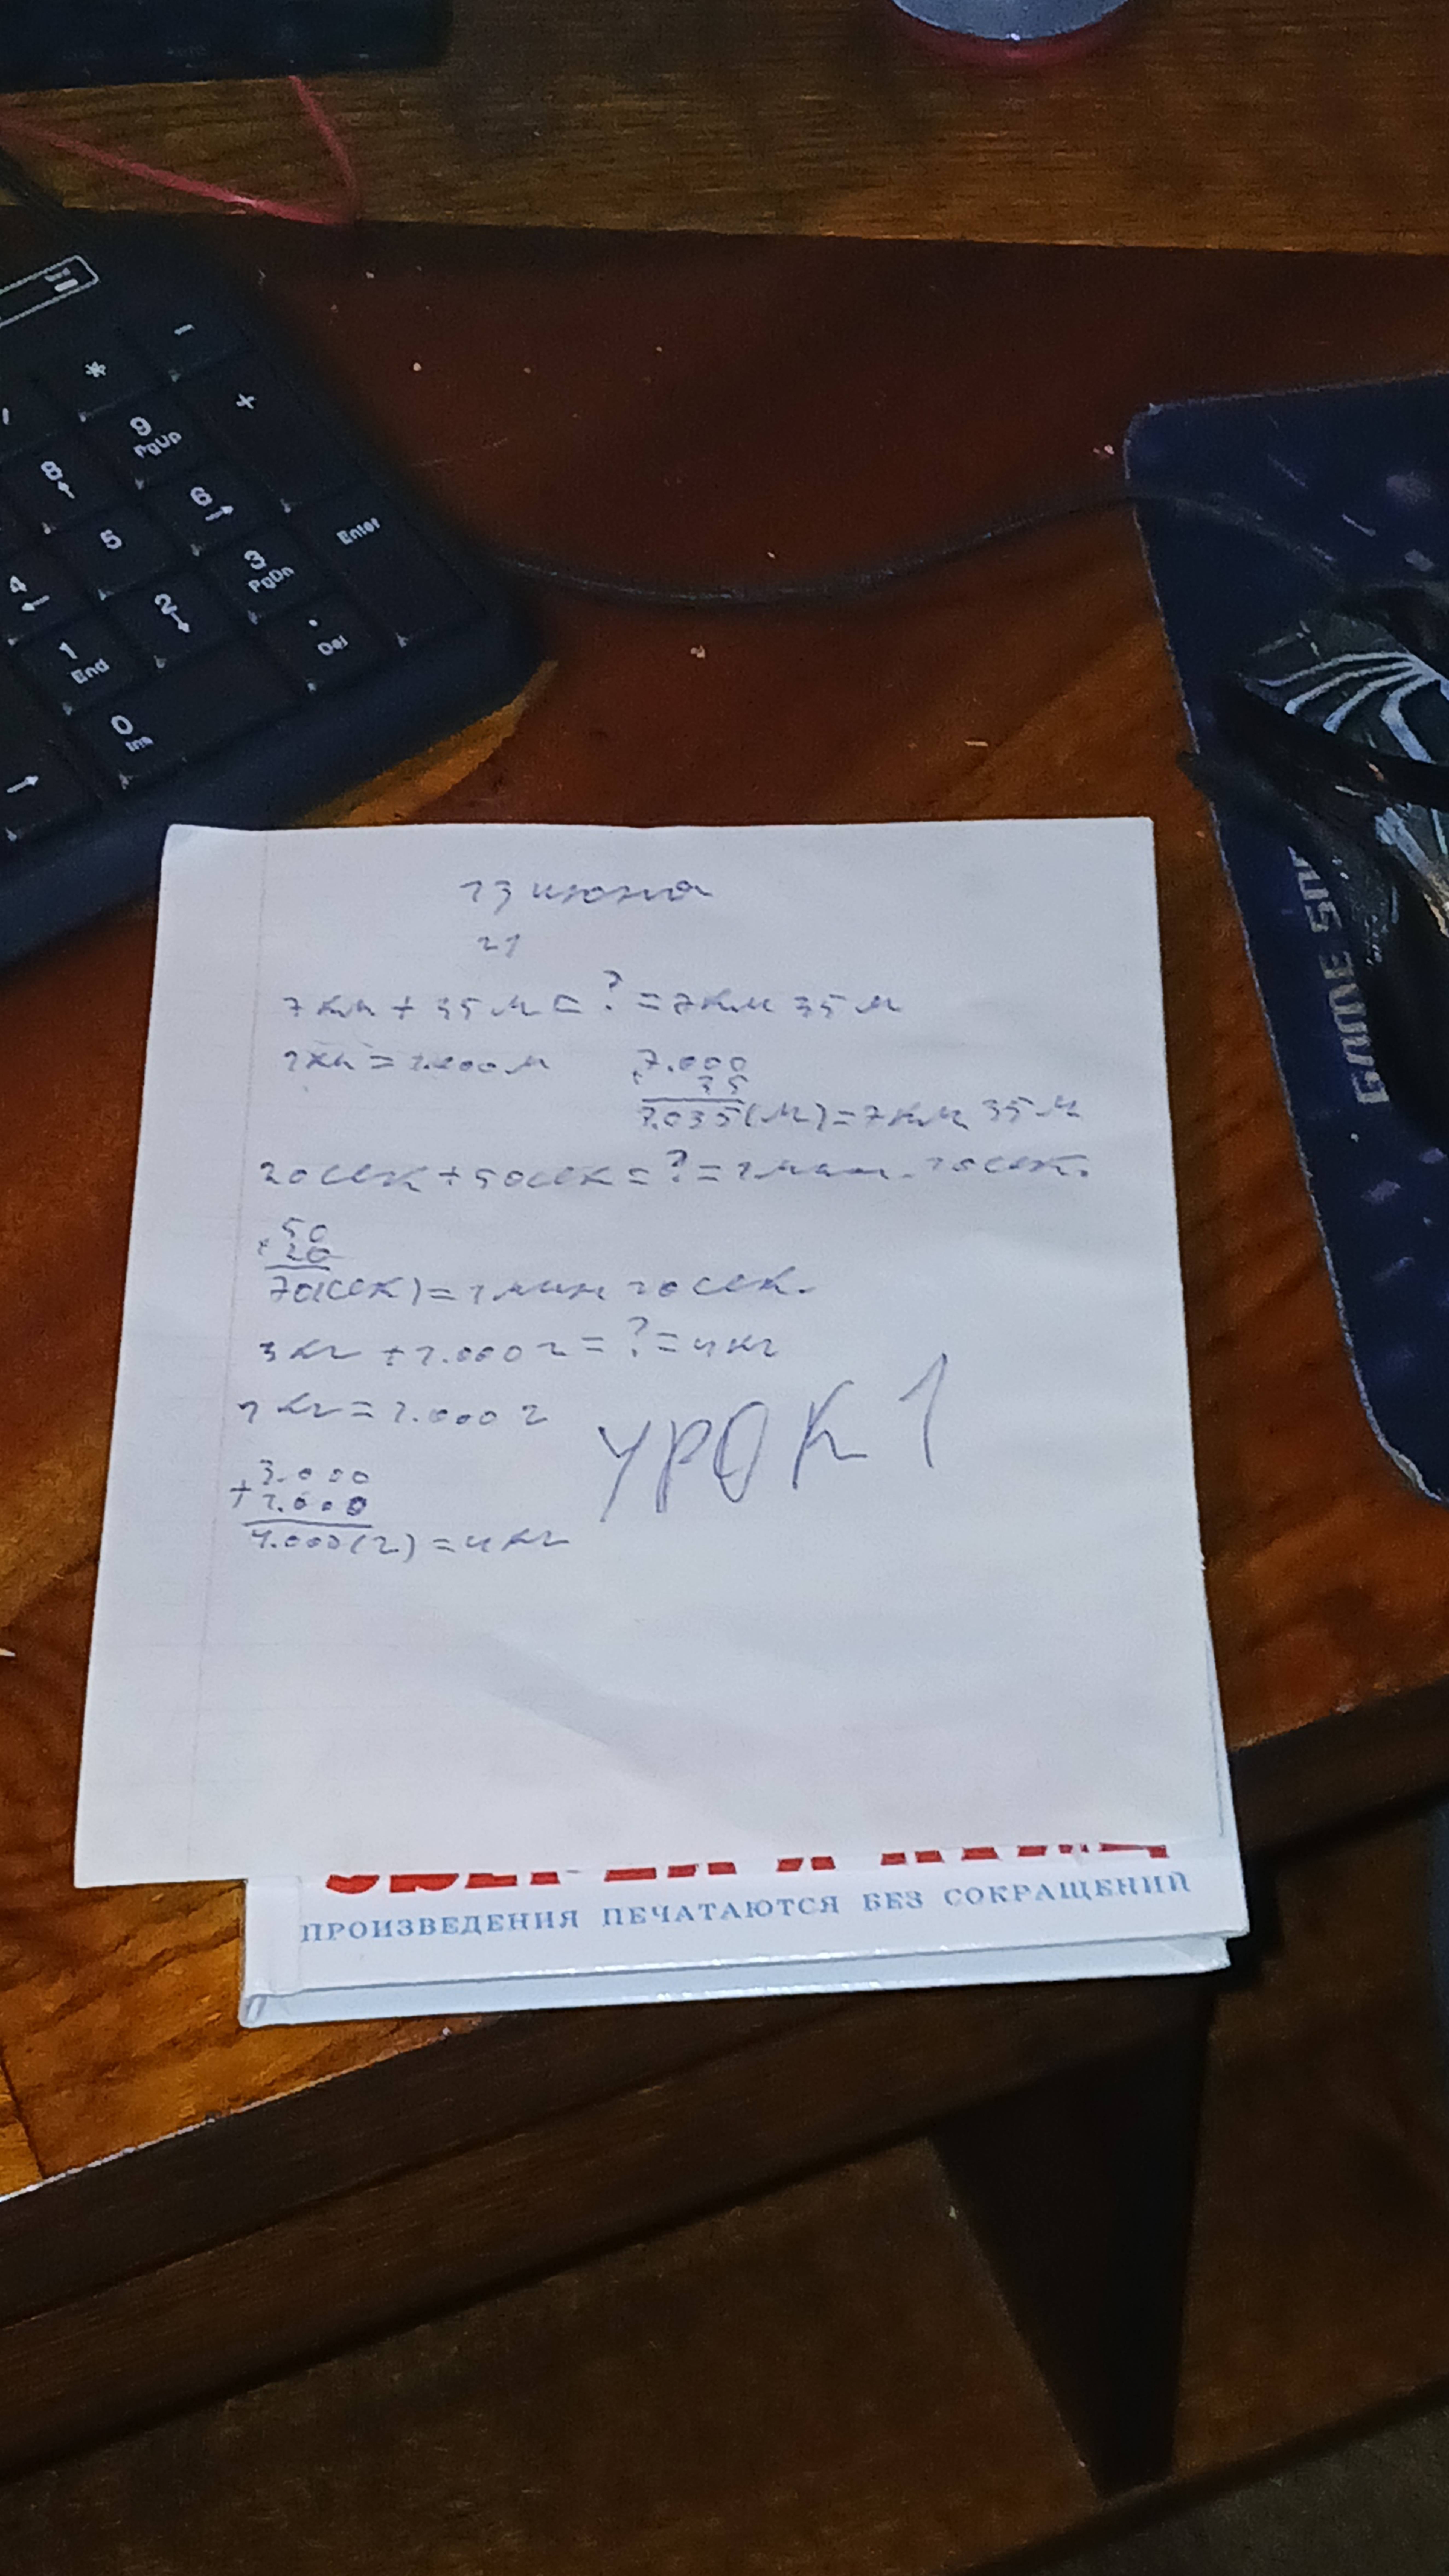 *
-
+
9
PgUp
8
6
5
Enter
4
3
PgDn
2
1
End
.
Del
0
Ins
13 июня
21
7 км + 35 м = ? = 7 км 35 м
1 км = 1.000 м
7.000
35
7.035 (м) = 7 км 35 м
20 сек + 50 сек = ? = 1 мин. 10 сек.
50
20
70(сек) = 1 мин 10 сек.
3 кг + 1.000 г = ? = 4 кг
1 кг = 1.000 г
УРОК 1
3.000
+ 1.000
4.000 (г) = 4 кг
ПРОИЗВЕДЕНИЯ ПЕЧАТАЮТСЯ БЕЗ СОКРАЩЕНИЙ
GAME